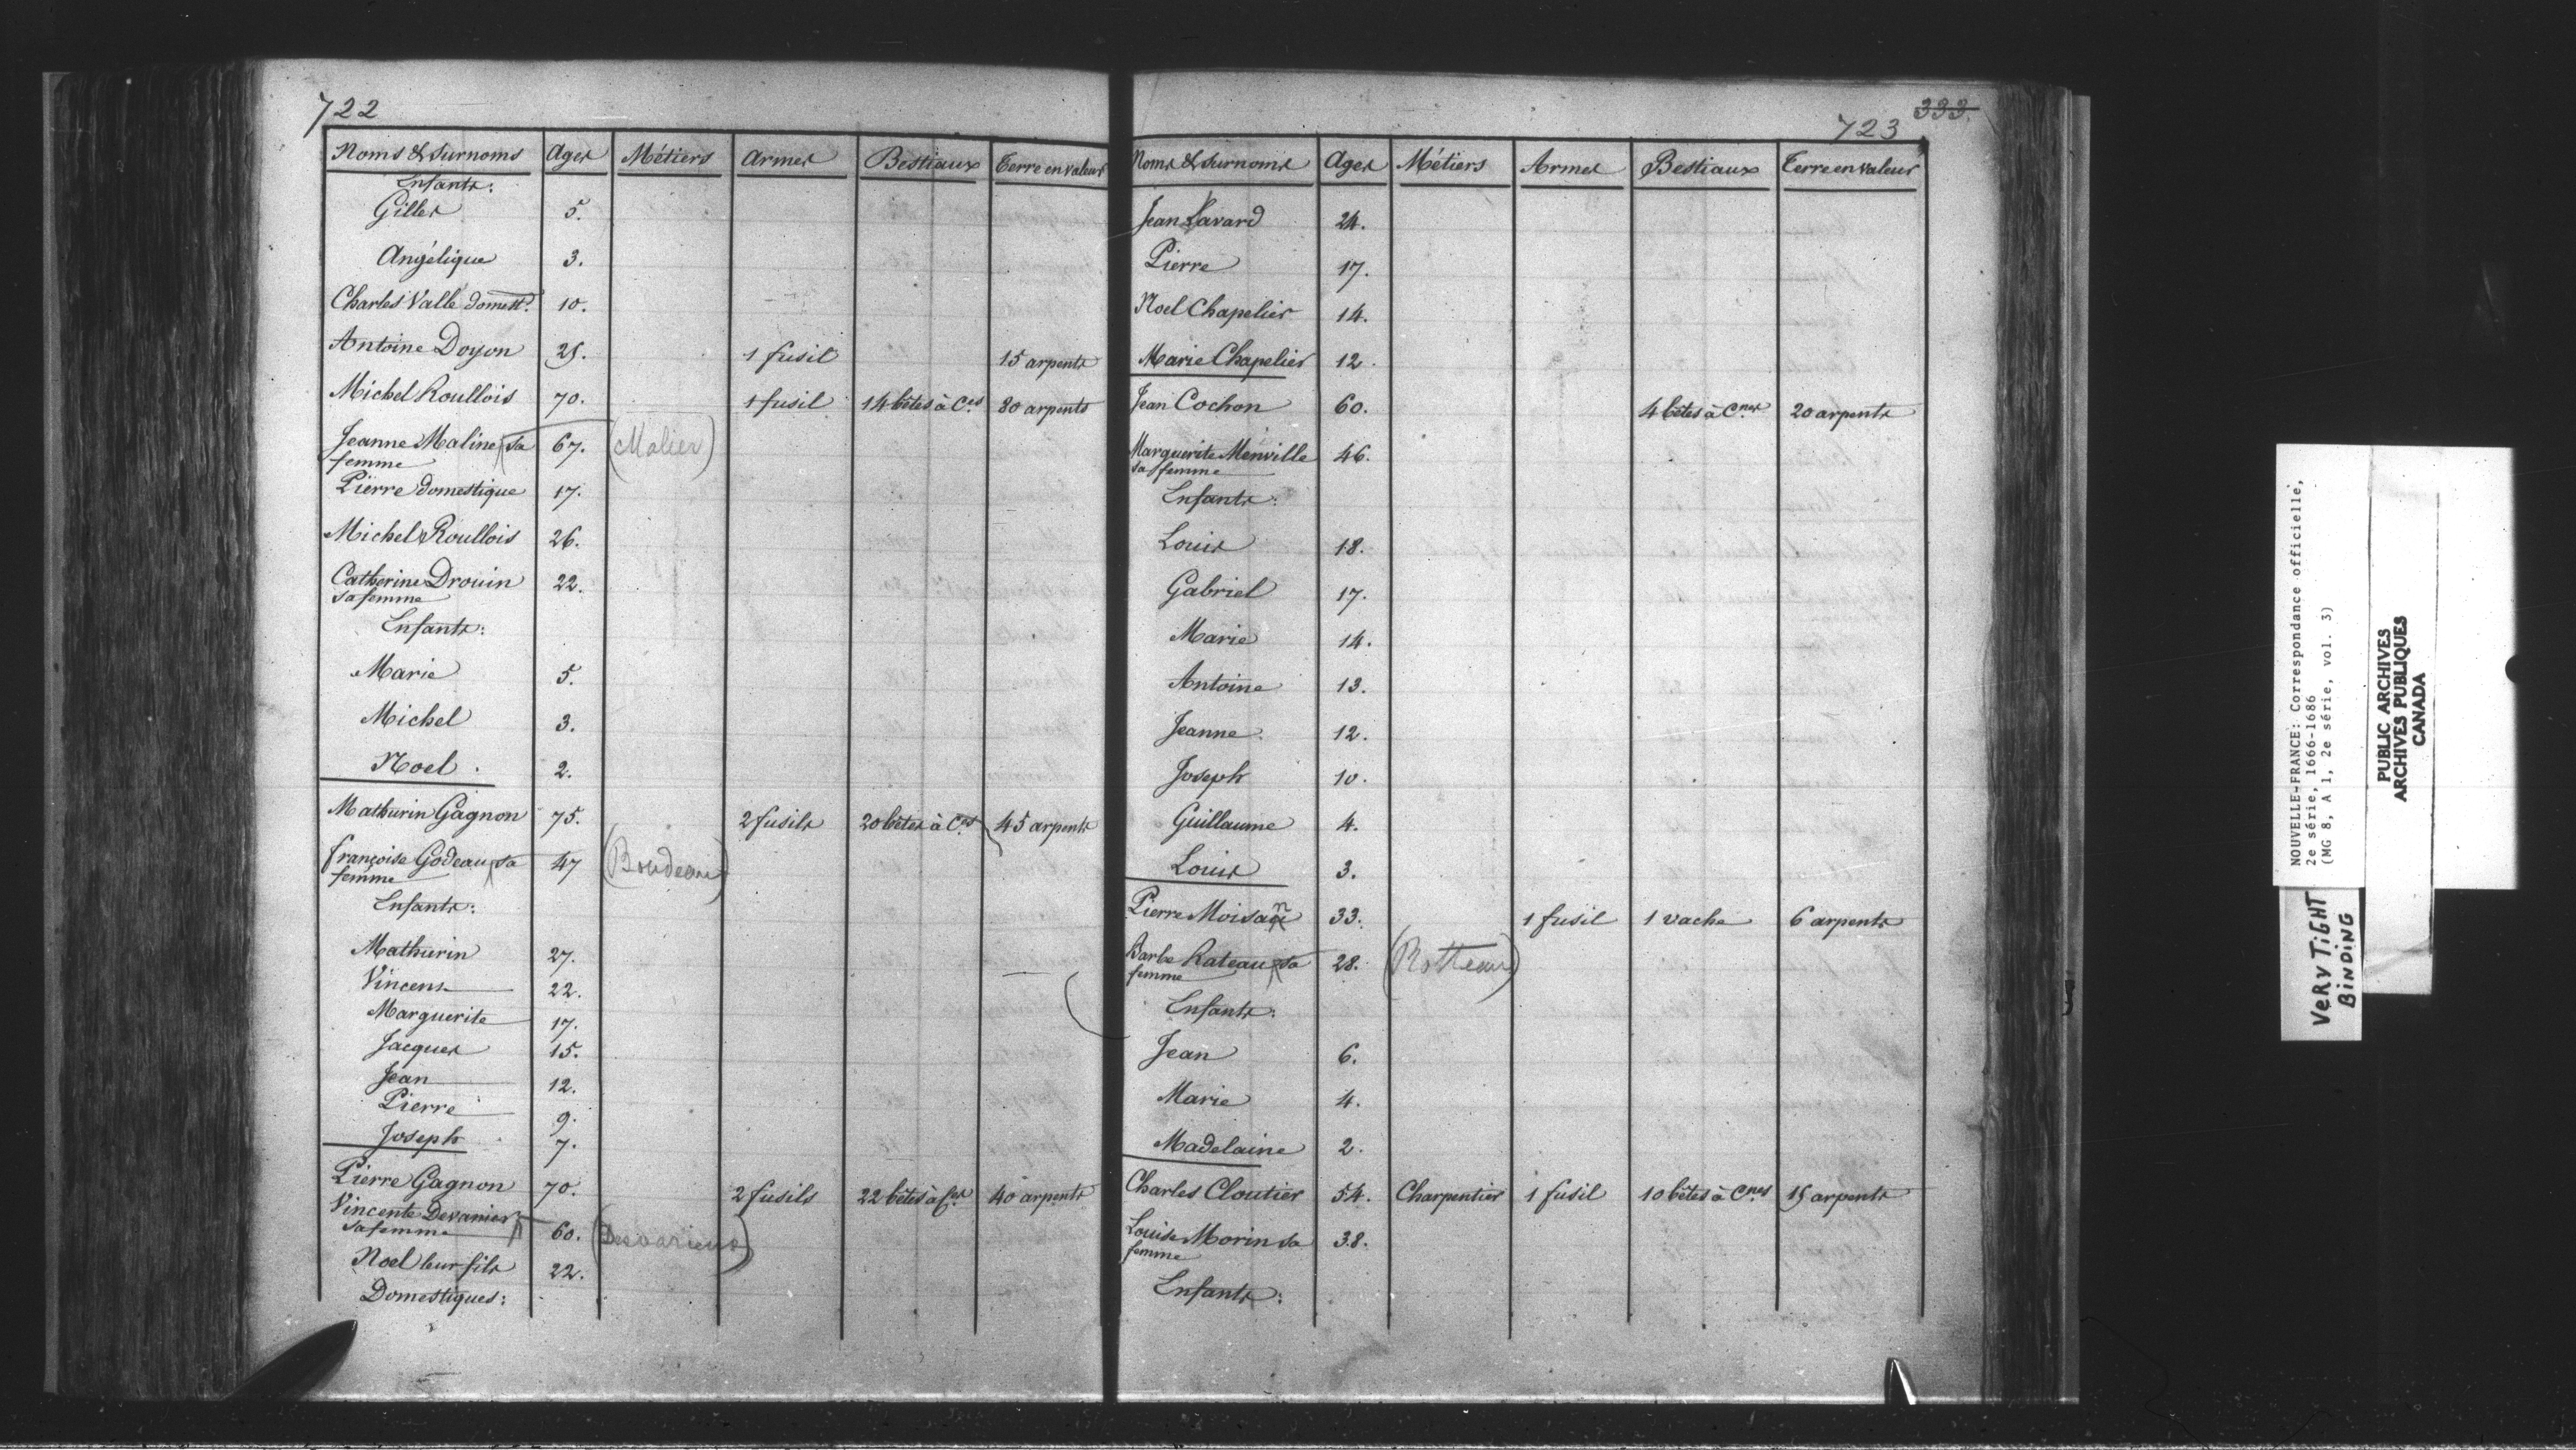 722
Noms & Surnoms Ages Métiers Armes Bestiaux Terre en valeur
Enfants:
Gilles 5.
Angélique 3.
Charles Vallé domest. 10.
Antoine Doyon 25. 1 fusil 15 arpents
Michel Roullois 70. 1 fusil 14 bêtes à Ces 80 arpents
Jeanne Maline sa 67. (Malier)
femme
Pierre domestique 17.
Michel Roullois 26.
Catherine Drouin 22.
sa femme
Enfants:
Marie 5.
Michel 3.
Noel. 2.
Mathurin Gagnon 75. 2 fusils 20 bêtes à Ces 45 arpents
françoise Godeau sa 47 (Boudeau)
femme
Enfants:
Mathurin 27.
Vincens 22.
Marguerite 17.
Jacques 15.
Jean 12.
Pierre 9.
Joseph 7.
Pierre Gagnon 70. 2 fusils 22 bêtes à Ces 40 arpents
Vincente Devanier
sa femme 60. (Desvarieux)
Noel leur fils 22.
Domestiques:
333.
723
Noms & Surnoms Ages Métiers Armes Bestiaux Terre en valeur
Jean Savard 24.
Pierre 17.
Noel Chapelier 14.
Marie Chapelier 12.
Jean Cochon 60. 4 bêtes à Cnes 20 arpents
Marguerite Menville 46.
sa femme
Enfants:
Louis 18.
Gabriel 17.
Marie 14.
Antoine 13.
Jeanne 12.
Joseph 10.
Guillaume 4.
Louis 3.
Pierre Moisan 33. 1 fusil 1 vache 6 arpents
Barbe Rateau sa 28. (Rotteau)
femme
Enfants:
Jean 6.
Marie 4.
Madelaine 2.
Charles Cloutier 54. Charpentier 1 fusil 10 bêtes à Cnes 15 arpents
Louise Morin sa 38.
femme
Enfants:
NOUVELLE-FRANCE: Correspondance officielle,
2e série, 1666-1686
(MG 8, A 1, 2e série, vol. 3)
PUBLIC ARCHIVES
ARCHIVES PUBLIQUES
CANADA
VERY TiGHT
BiNDiNG